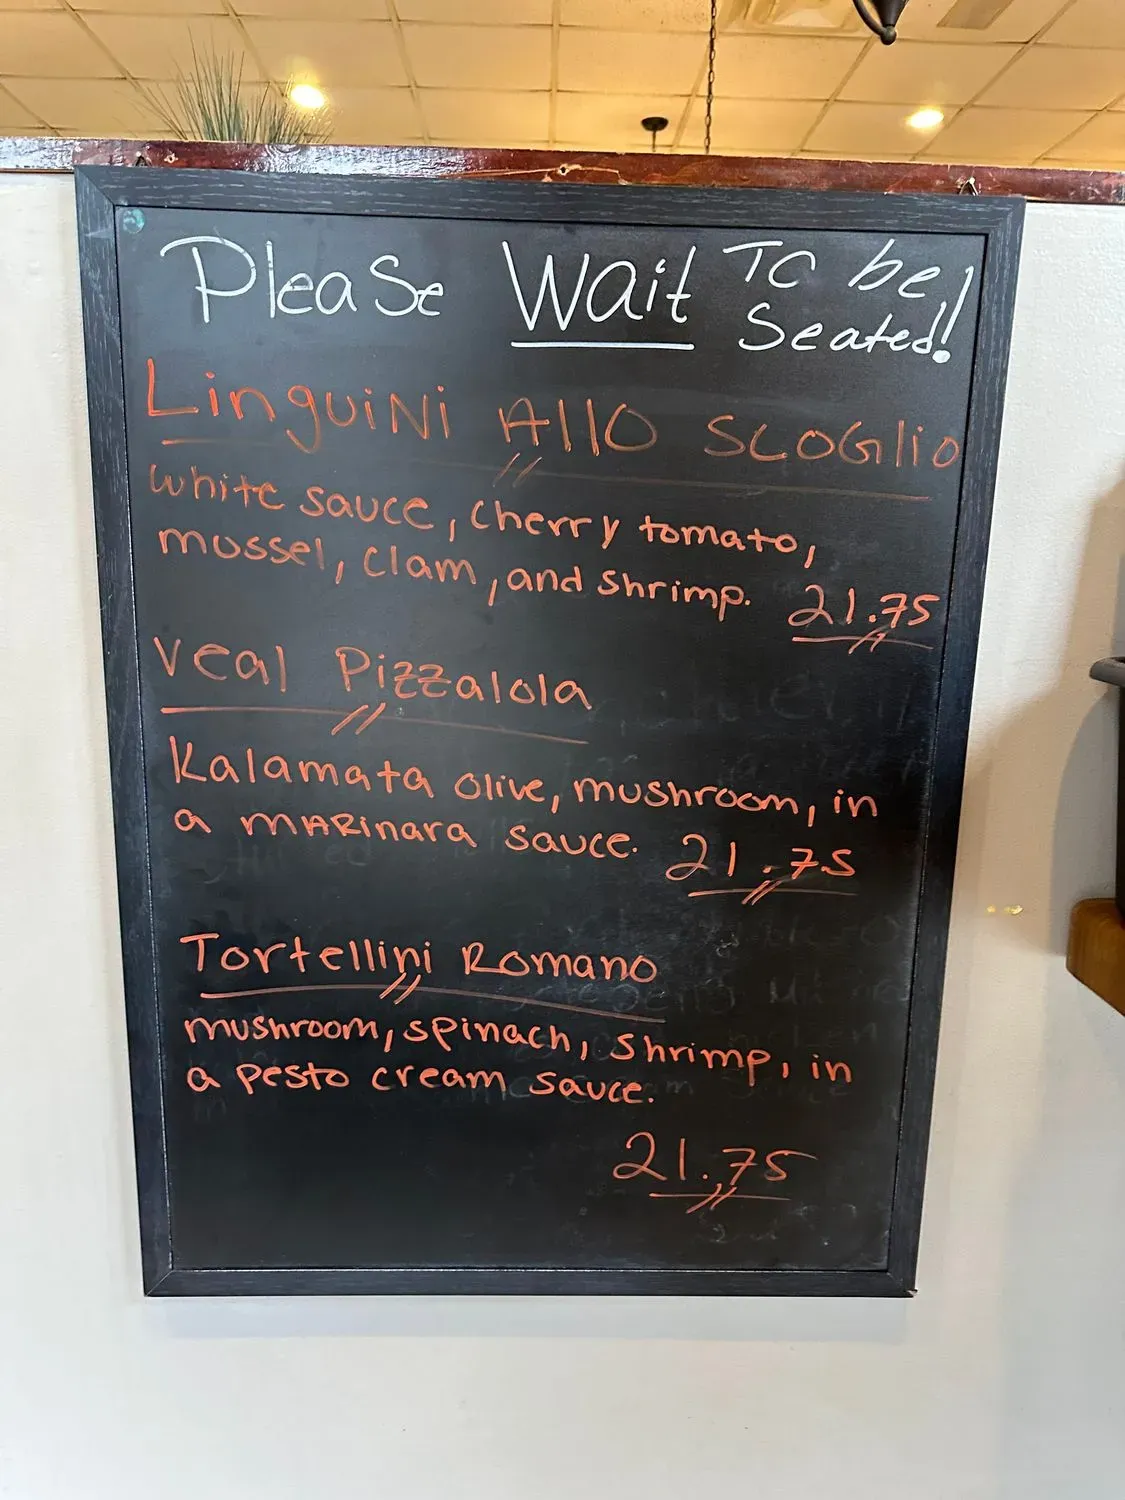 Please Wait To be
Seated!!
Linguini Allo Scoglio
white sauce, cherry tomato,
mussel, clam, and shrimp. 21.75
Veal Pizzalola
Kalamata olive, mushroom, in
a marinara sauce. 21.75
Tortellini Romano
mushroom, spinach, shrimp, in
a pesto cream sauce.
21.75